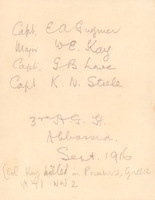 Capt. E A Gugner
Major W E. Kay
Capt. G B Lowe
Capt K. N. Steele
3rd A G H
Abbassia.
Sept. 1916
(Col Kay killed in Piraeus, Greece
1941 WW 2